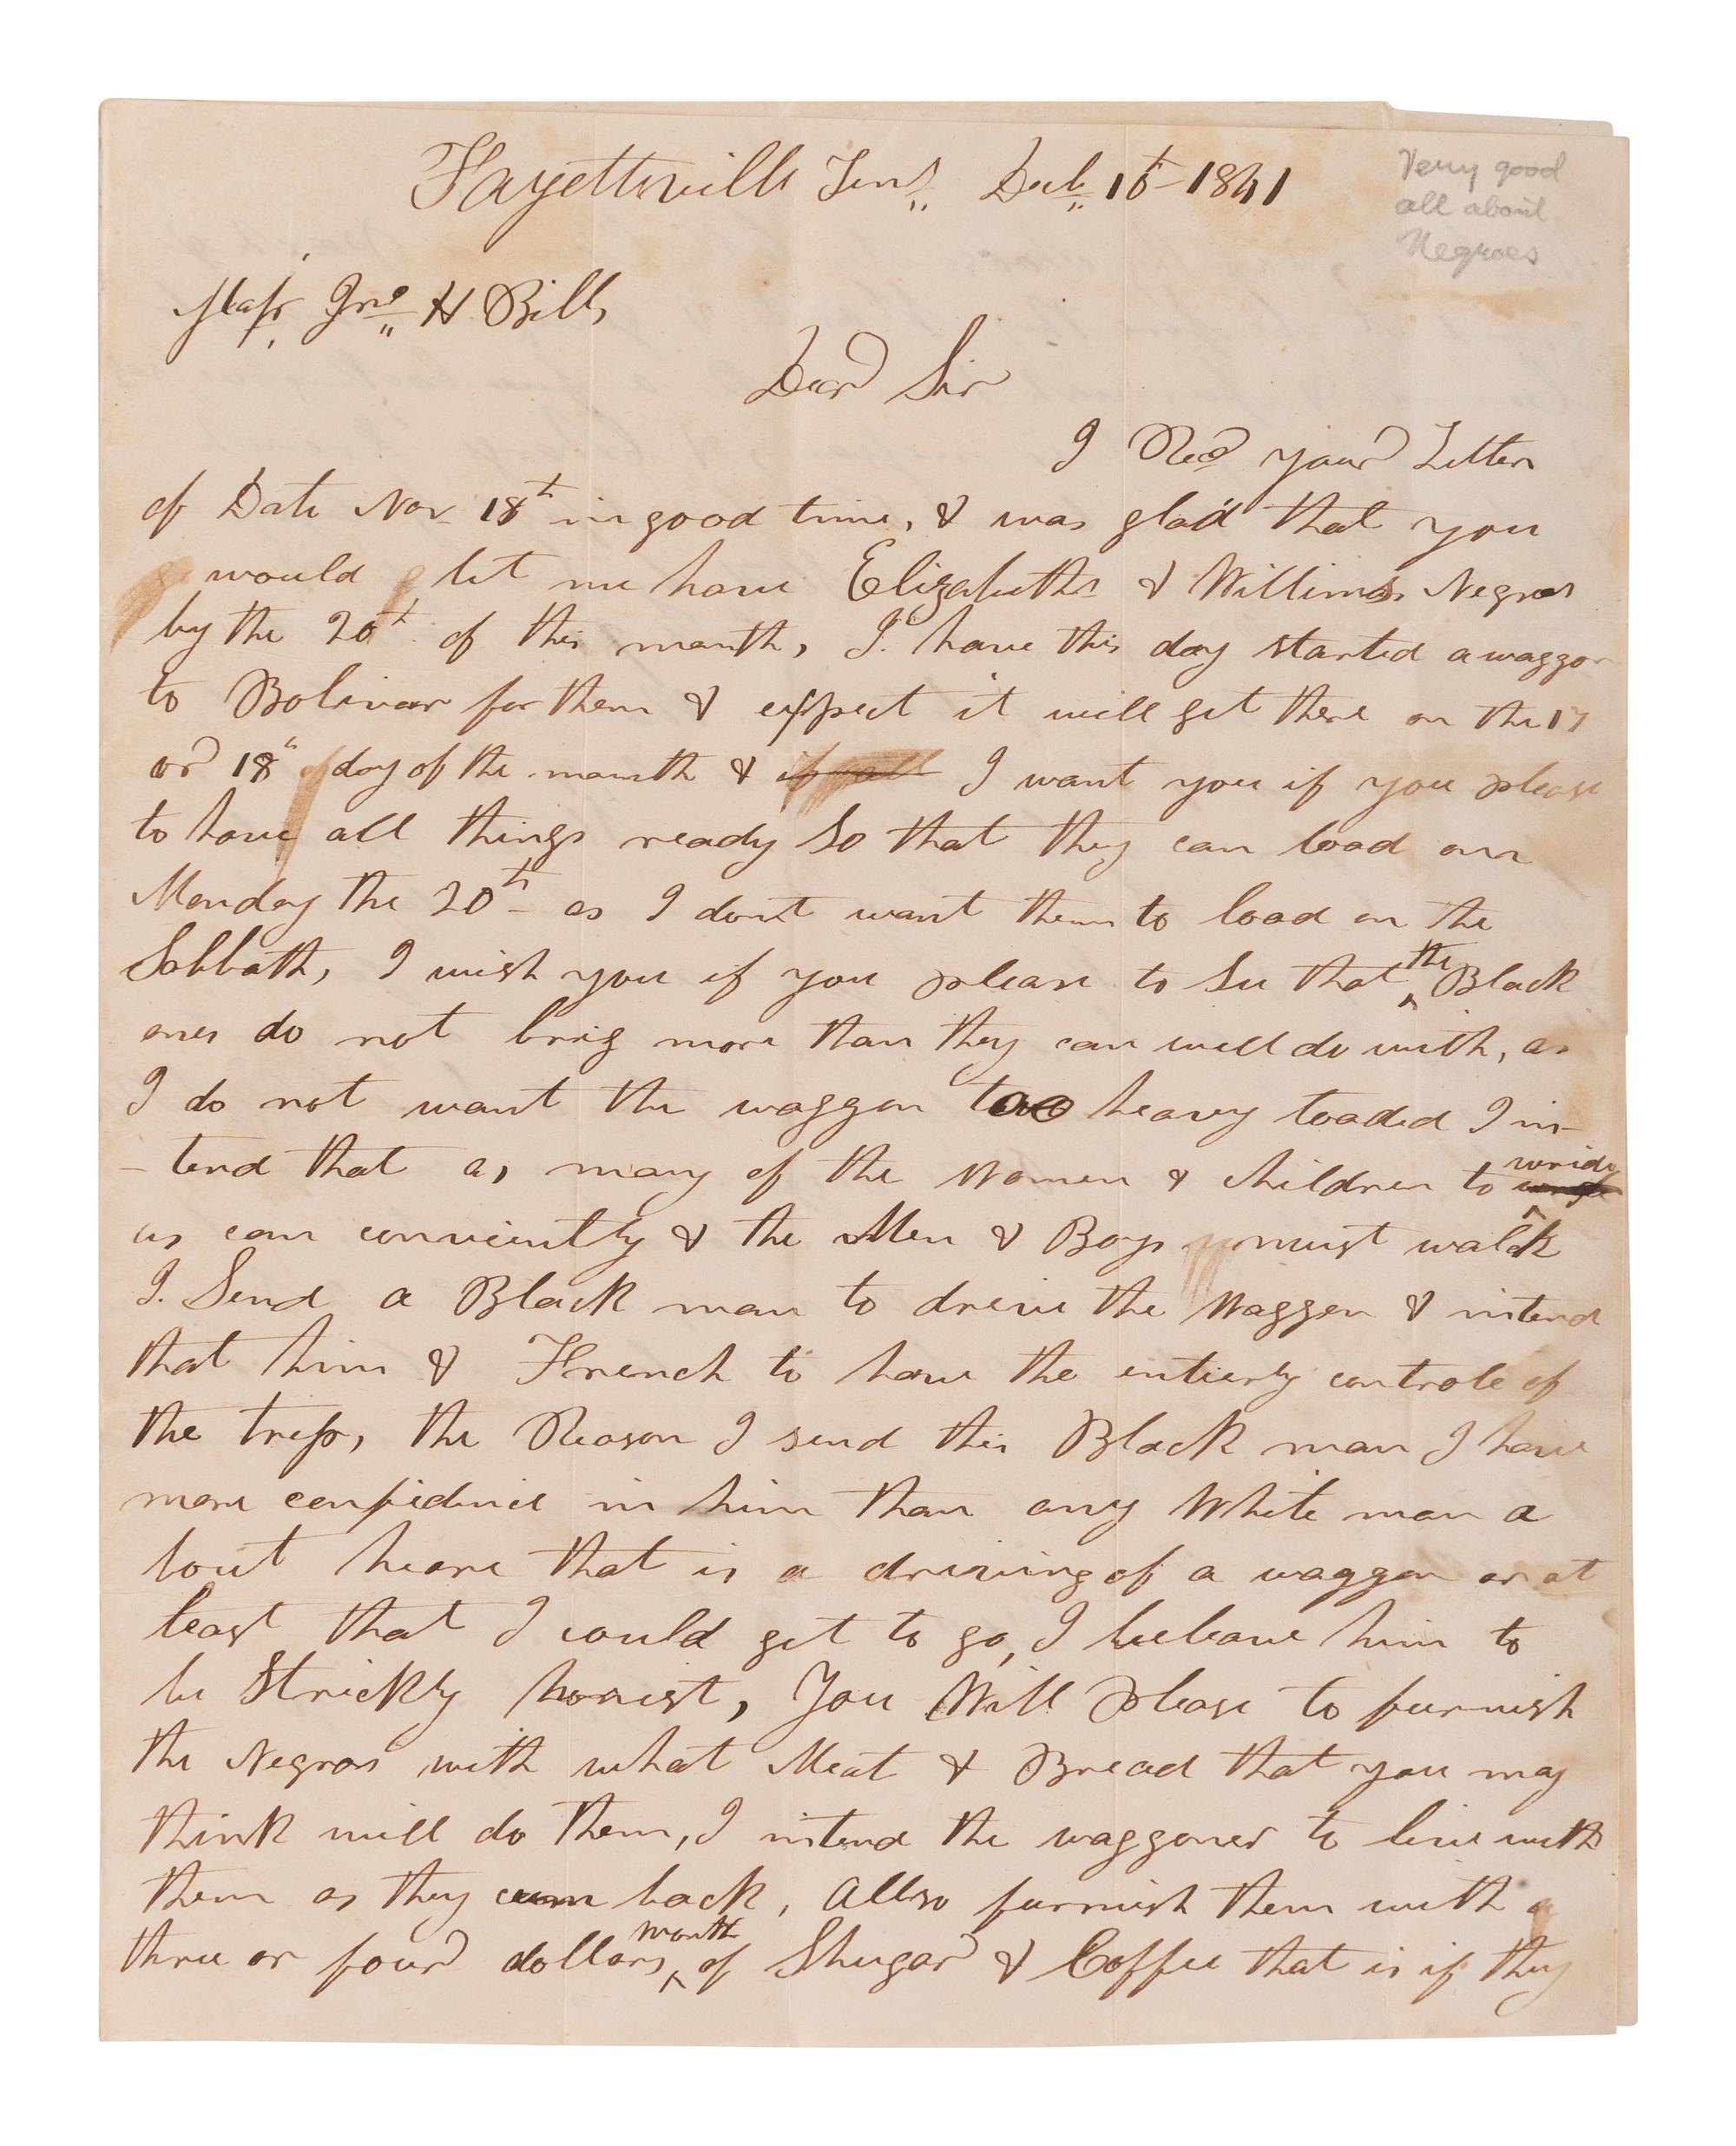 Fayettville Tenn,, Decb,, 1841
Very good
all about
Negroes
Majr Jno,, H Bills
Dear Sir
I Recd your Letter
of Date Nov 18th in good time, & was glad that you
would let me have Elizabeths & Willims Negros
by the 20th of this month, I. have this day started a waggon
to Bolivar for them & expect it will get there on the 17
or 18th day of the month & if all I want you if you please
to have all things ready So that they can load on
Monday the 20th as I dont want them to load on the
Sabbath, I wish you if you please to See that the Black
ones do not brig more than they can well do with, as
I do not want the waggon too heavy loaded I in-
-tend that as many of the Women & children to wride
as can conviently & the Men & Boys must walk
I. Send a Black man to drive the Waggon & intend
that him & French to have the entierly controle of
the trip, the Reason I send this Black man I have
more confidince in him than any White man a
bout heare that is a driving of a waggon or at
least that I could get to go, I beleave him to
be Strickly honist, You Will please to furnish
the Negros with what Meat & Bread that you may
think will do them, I intend the waggoner to live with
them as they cum back, Allso furnish them with a
three or four dollars worth of Shugar & Coffee that is if they